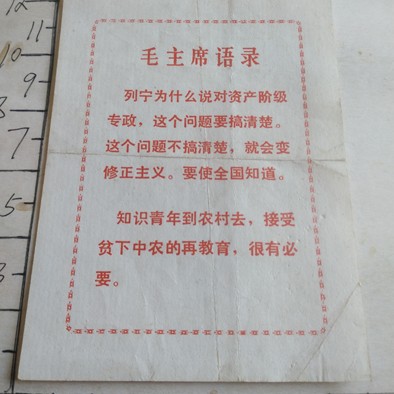 毛主席语录
列宁为什么说对资产阶级
专政，这个问题要搞清楚。
这个问题不搞清楚，就会变
修正主义。要使全国知道。
知识青年到农村去，接受
贫下中农的再教育，很有必
要。
12
11
10
9
8
7
5
3